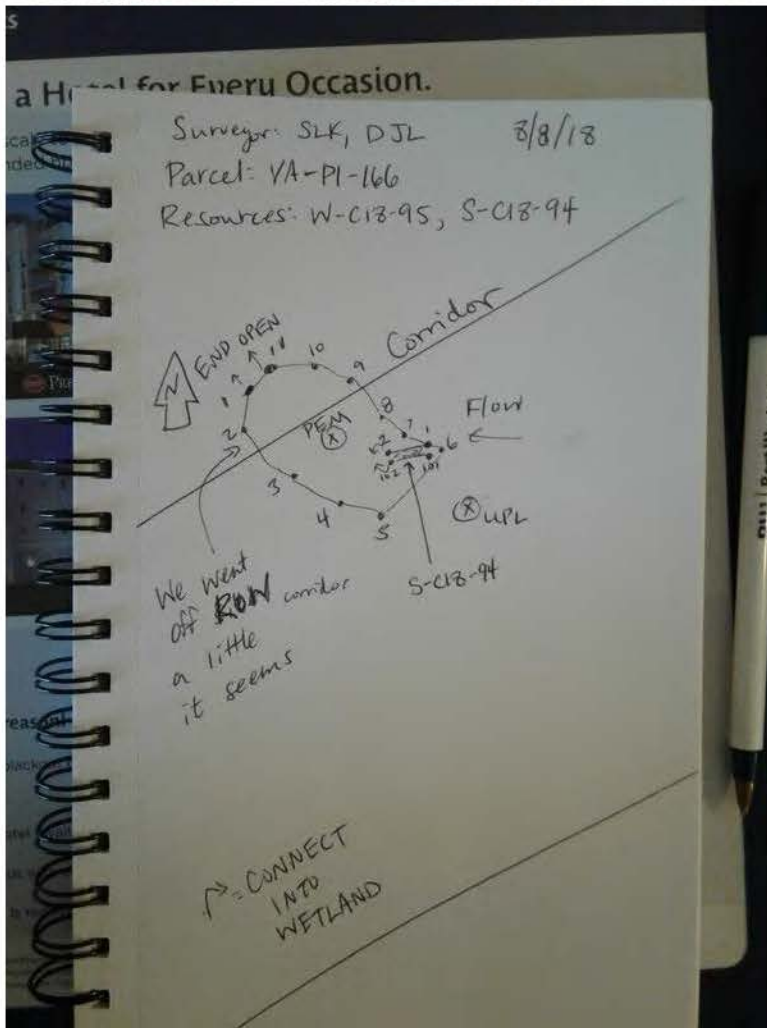 a Hotel for Every Occasion.
Surveyor: SLK, DJL 8/8/18
Parcel: VA-PI-166
Resources: W-C18-95, S-C18-94
Corridor
N
END OPEN
1
11
10
9
8
7
1
6
Flow
2
PEM
X
2
102
101
3
4
5
X UPL
S-C18-94
We went
off ROW corridor
a little
it seems
= CONNECT
INTO
WETLAND